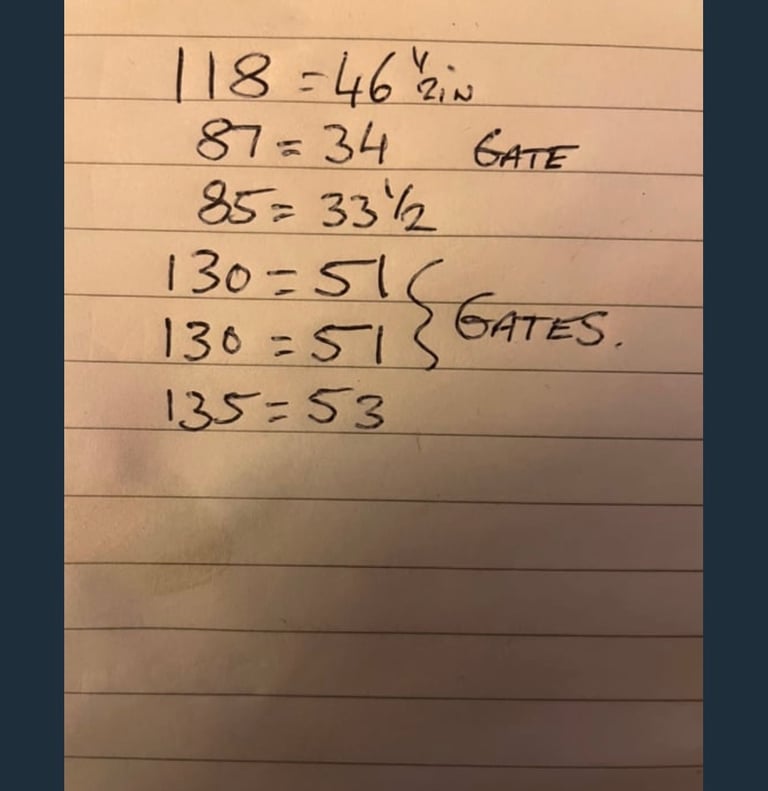 118 = 46 1/2 in
87 = 34 GATE
85 = 33 1/2
130 = 51
130 = 51 } GATES.
135 = 53